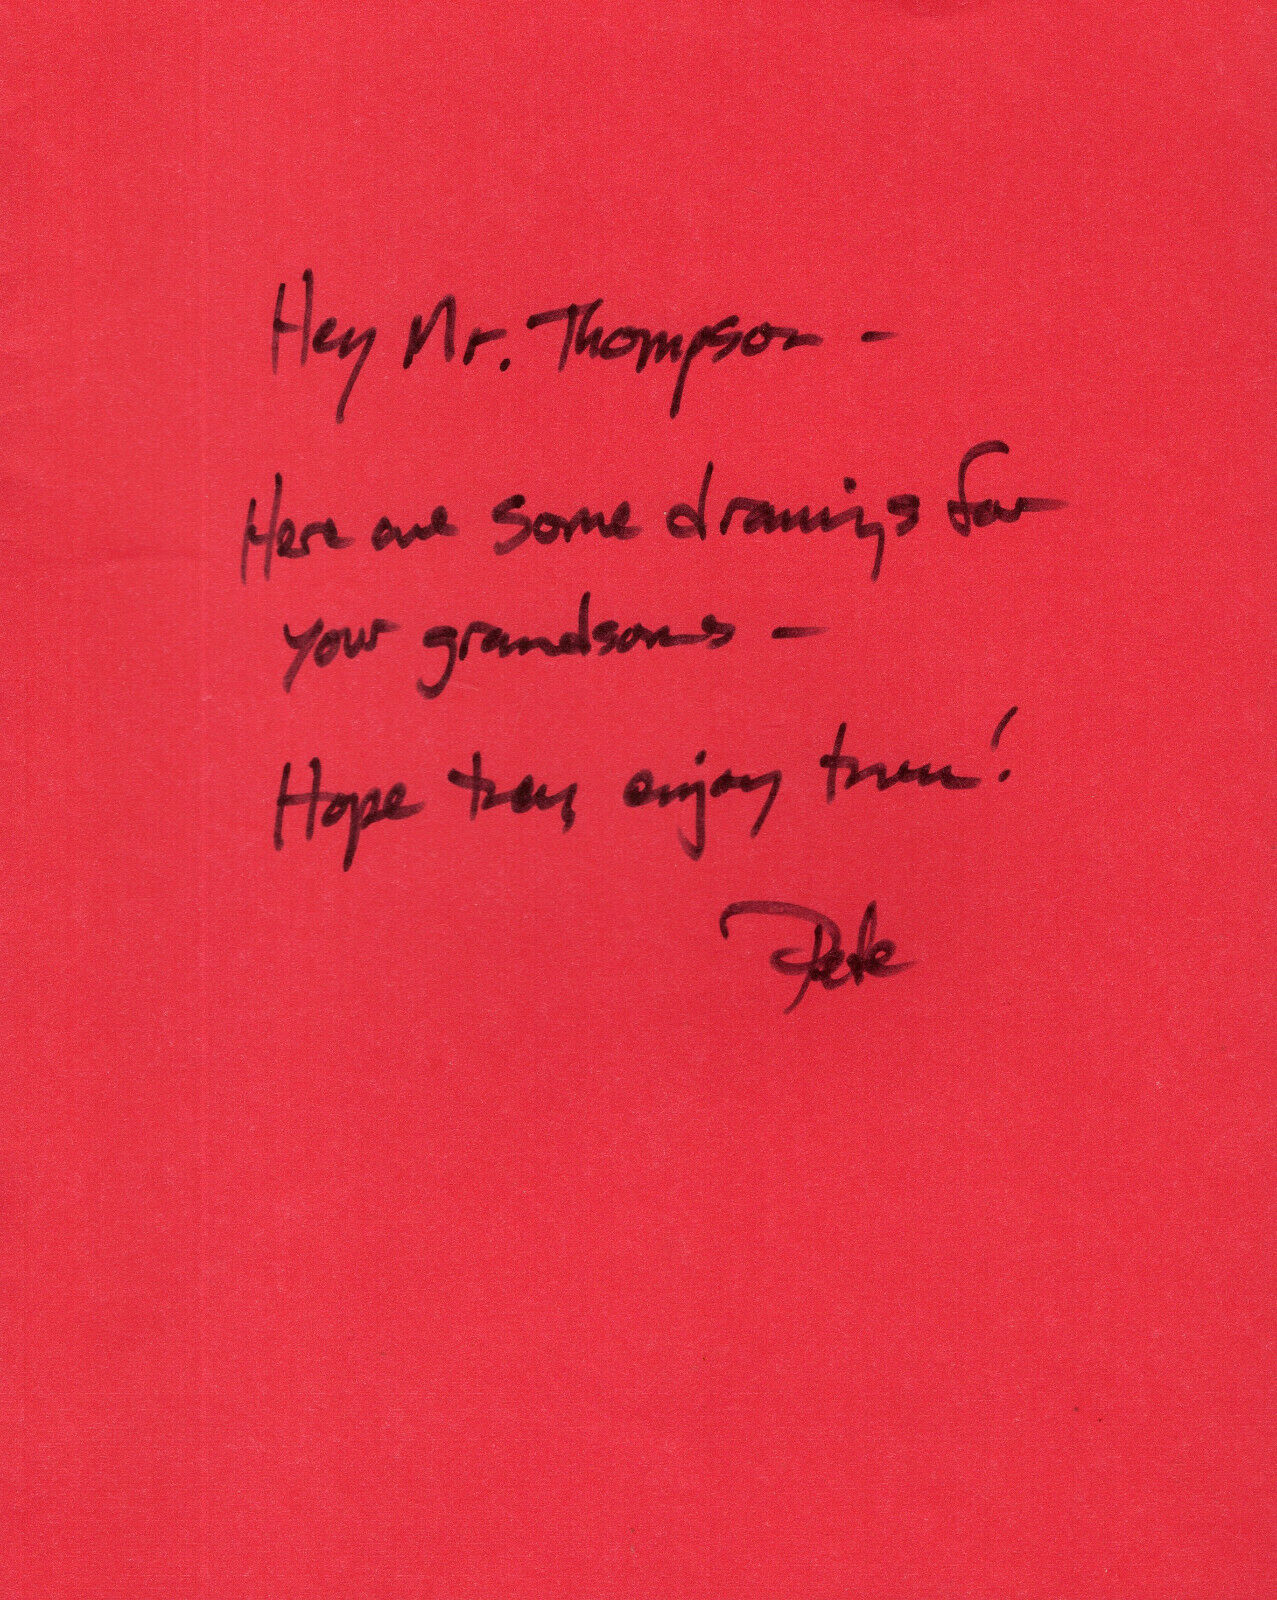 Hey Mr. Thompson -
Here are some drawings for
your grandsons -
Hope they enjoy them!
Pete